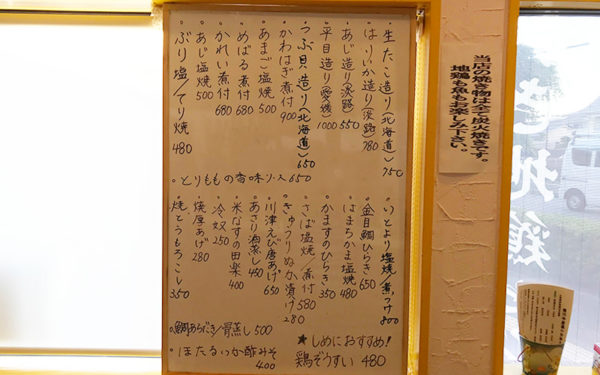 生たこ造り(北海道) 750
はりいか造り(淡路) 780
あじ造り(淡路) 550
平目造り(愛媛) 1000
つぶ貝造り(北海道) 650
かわはぎ煮付 900
あまご塩焼 500
めばる煮付 680
かれい煮付 680
あじ塩焼 500
ぶり塩/てり焼 480
とりももの香味ソース 650
いとより塩焼/煮つけ 800
金目鯛ひらき 650
はまちかま塩焼 480
かますのひらき 350
さば塩焼/煮付 580
きゅうりぬか漬け 280
川津えび唐あげ 650
あさり酒蒸し 450
米なすの田楽 400
冷奴 250
焼厚あげ 280
焼とうもろこし 350
鯛あらだき/骨蒸し 500
ほたるいか酢みそ 400
★しめにおすすめ!
鶏ぞうすい 480
当店の焼き物は全て炭火焼きです。
地鶏も魚もお楽しみ下さい。
地鶏